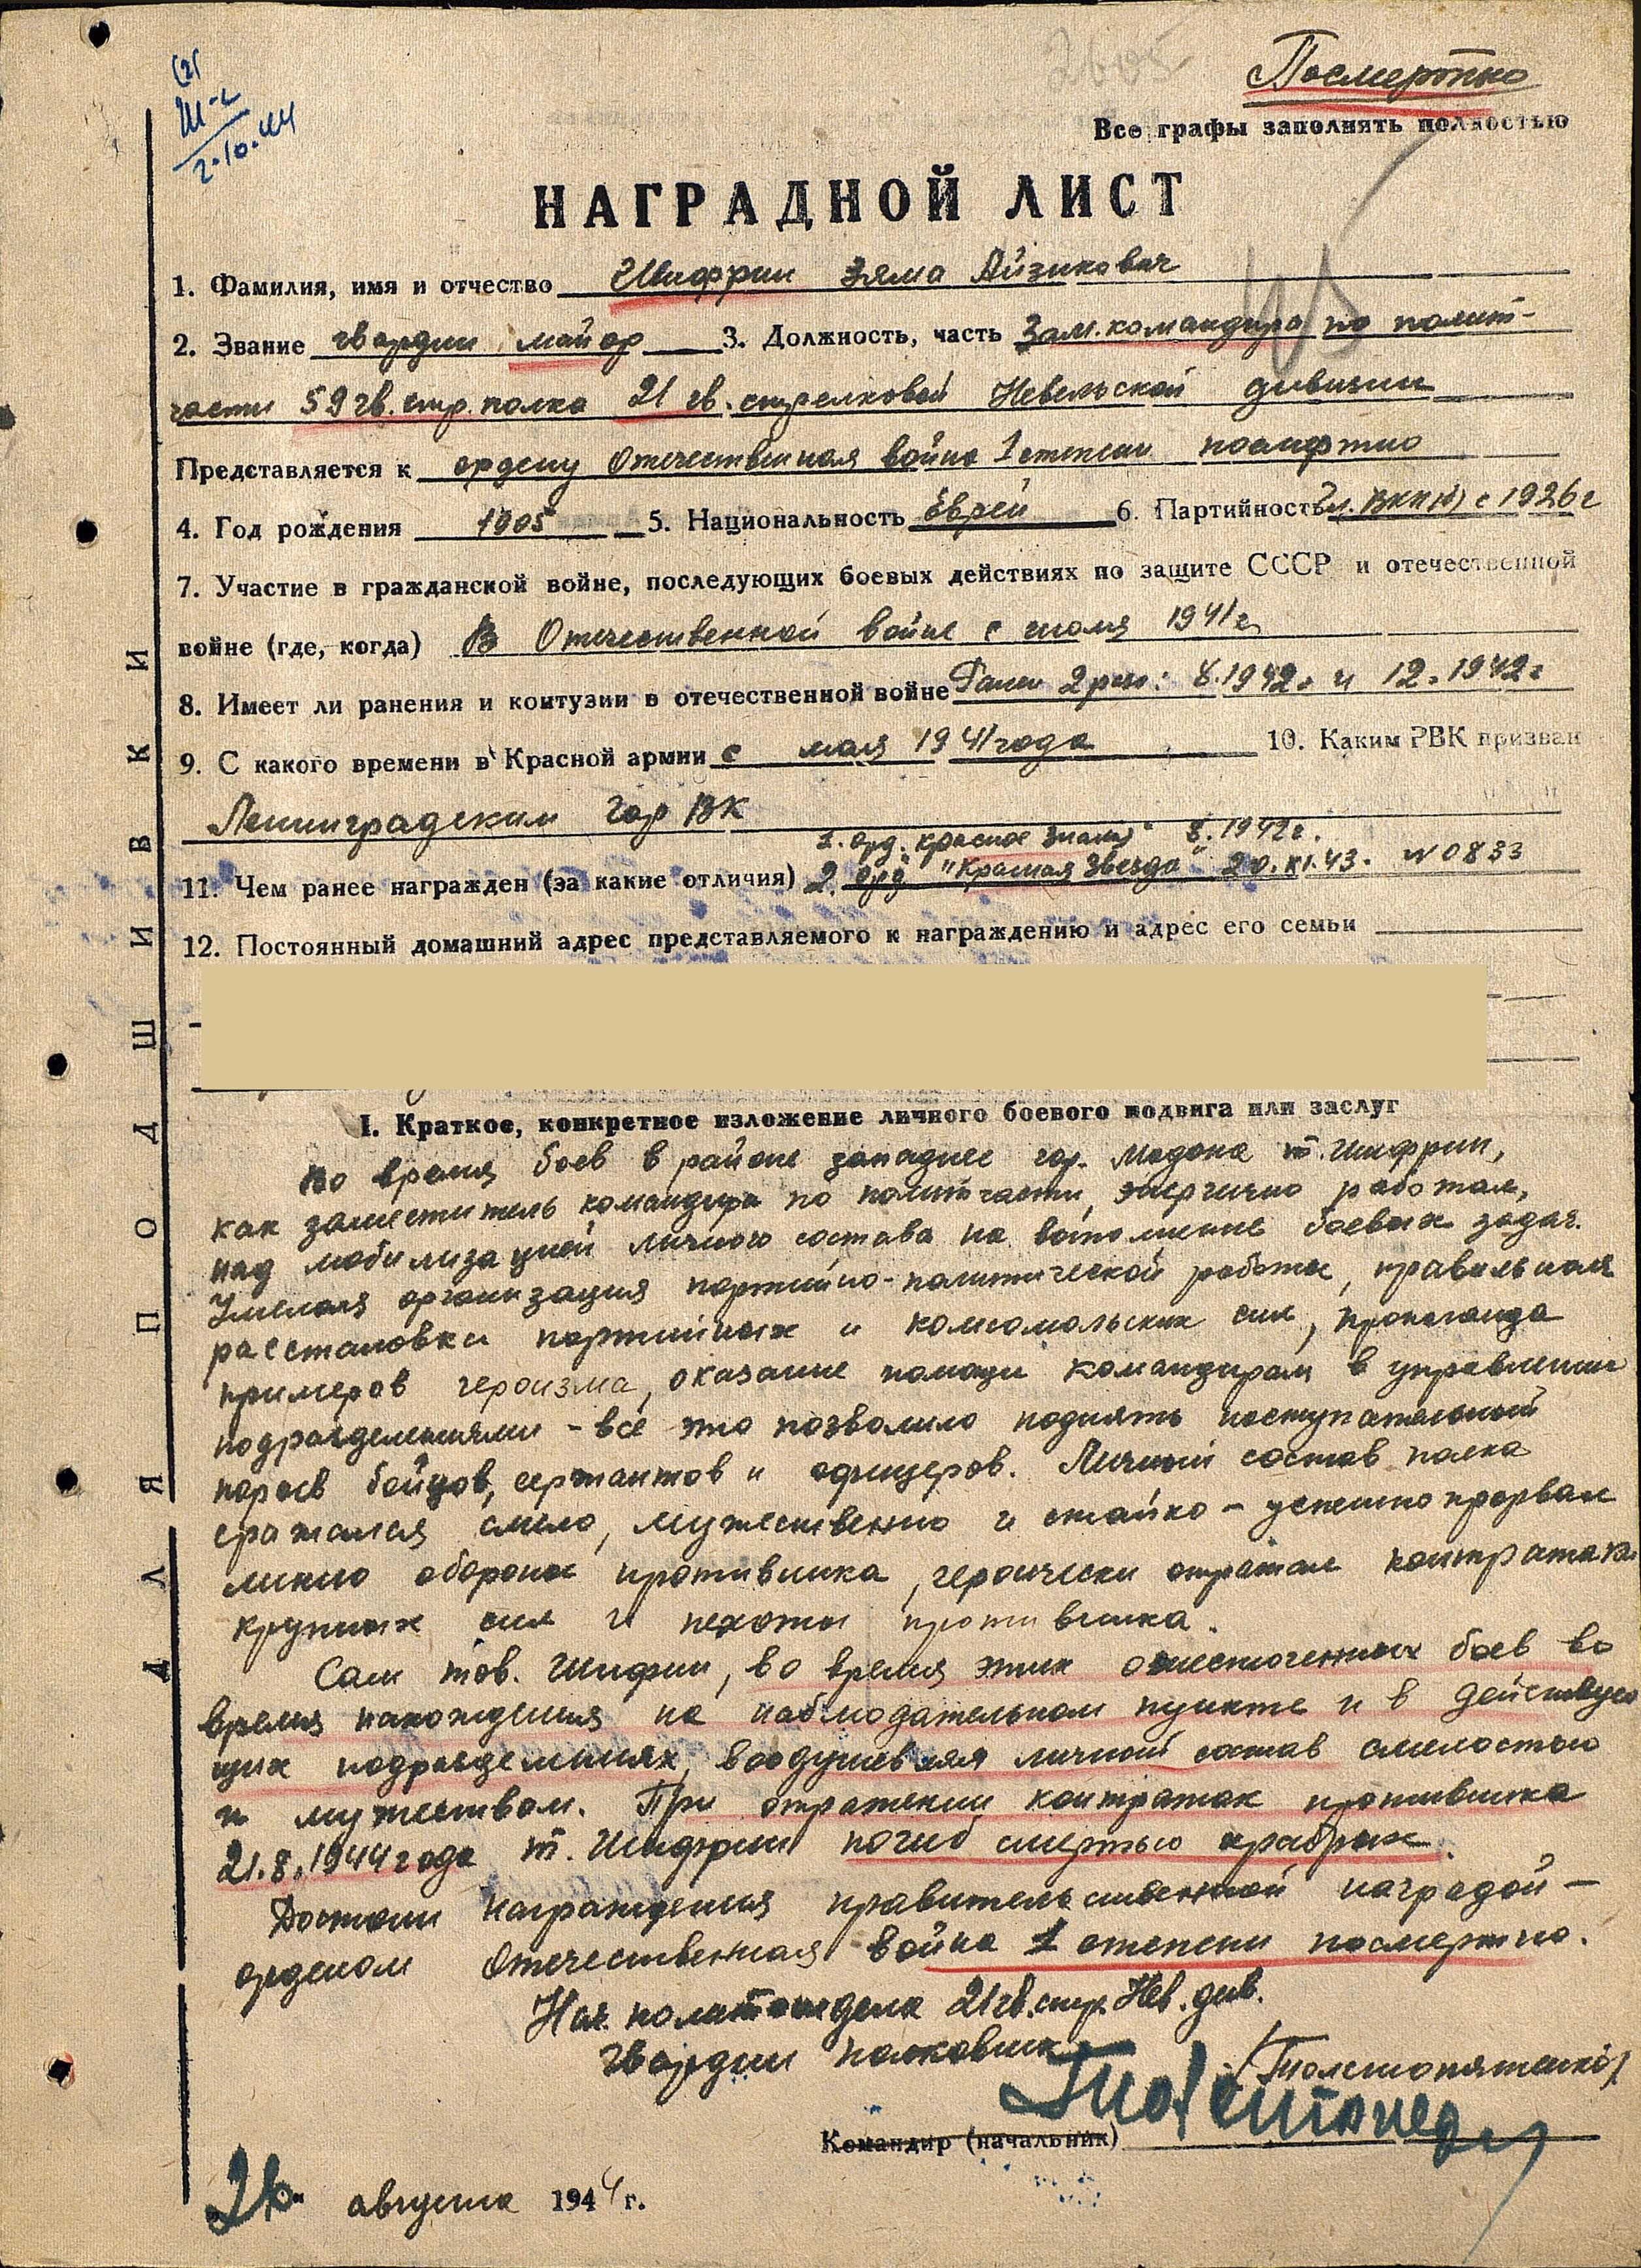 2605
Посмертно
Все графы заполнять полностью
Ш-с
2.10.44
НАГРАДНОЙ ЛИСТ
1. Фамилия, имя и отчество Шифрин Зяма Айзикович
2. Звание гвардии майор 3. Должность, часть Зам. командира по полит-
части 59 гв. стр. полка 21 гв. стрелковой Невельской дивизии
Представляется к ордену Отечественная война 1 степени посмертно
4. Год рождения 1905 5. Национальность Еврей 6. Партийность Чл. ВКП(б) с 1926 г
7. Участие в гражданской войне, последующих боевых действиях по защите СССР и отечественной
войне (где, когда) В Отечественной войне с июля 1941 г.
8. Имеет ли ранения и контузии в отечественной войне Ранен 2 раза: 8.1942 г. и 12.1942 г
9. С какого времени в Красной армии с мая 1941 года 10. Каким РВК призван
Ленинградским Гор ВК
1. орд. "Красное Знамя" 8.1942 г.
11. Чем ранее награжден (за какие отличия) 2. орд. "Красная Звезда" 20.XI.43. N 0833
12. Постоянный домашний адрес представляемого к награждению и адрес его семьи
I. Краткое, конкретное изложение личного боевого подвига или заслуг
Во время боев в районе западнее гор. Мадона т. Шифрин,
как заместитель командира по политчасти, энергично работал,
над мобилизацией личного состава на выполнение боевых задач.
Умелая организация партийно-политической работы, правильная
расстановка партийных и комсомольских сил, пропаганда
примеров героизма, оказание помощи командирам в управлении
подразделениями - всё это позволило поднять наступательный
порыв бойцов, сержантов и офицеров. Личный состав полка
сражался смело, мужественно и стойко - успешно прорвал
линию обороны противника, героически отражал контратаки
крупных сил и пехоты противника.
Сам тов. Шифрин, во время этих ожесточенных боев во
время нахождения на наблюдательном пункте и в действую
щих подразделениях, воодушевлял личный состав смелостью
и мужеством. При отражении контратак противника
21.8.1944 года т. Шифрин погиб смертью храбрых.
Достоин награждения правительственной наградой -
орденом Отечественная война 1 степени посмертно.
Нач. политотдела 21 гв. стр. Нев. див.
гвардии полковник
/Толстопятенко/
Командир (начальник)
"26" августа 1944 г.
ДЛЯ ПОДШИВКИ